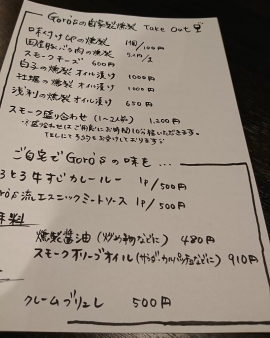 Goro'sの自家製燻製 Take Out
味付け卵の燻製 1個/100円
国産豚バラ肉の燻製
スモークチーズ 600円
白子の燻製 オイル漬け 1000円
牡蠣の燻製 オイル漬け 1000円
浅利の燻製 オイル漬け 650円
スモーク盛り合わせ(1〜2人前) 1,200円
※盛り合わせはご用意にお時間10分程いただきます。
TELにて予約もお受けしております
ご自宅でGoro'sの味を...
牛すじカレールー 1p/500円
流エスニックミートソース 1p/500円
燻製醤油(炒め物などに) 480円
スモークオリーブオイル(サラダ、カルパッチョなどに) 910円
クレームブリュレ 500円